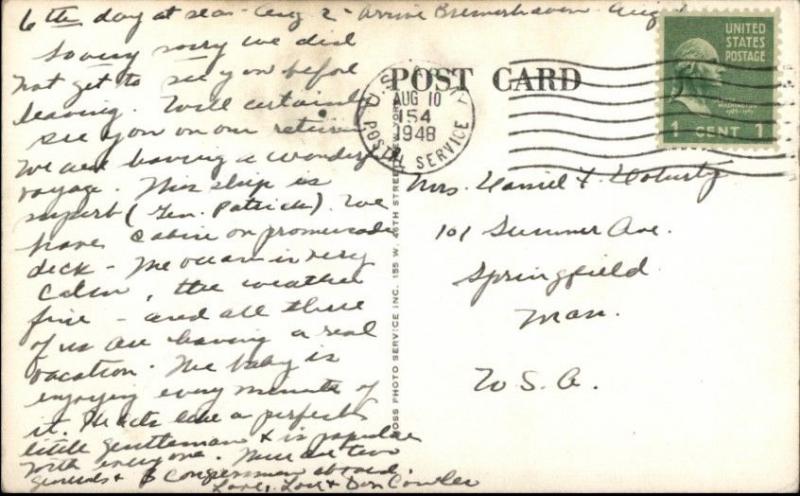 6th day at sea - Aug 2 - Arrive Bremerhaven Aug
So very sorry we did
not get to see you before
leaving. Will certainly
see you on our return
We are having a wonderful
voyage. This ship is
superb (Gen. Patrick). We
have cabin on promenade
deck - The ocean is very
calm, the weather
fine - and all three
of us are having a real
vacation. The baby is
enjoying every minute of
it. He acts like a perfect
little gentleman & is popular
with everyone. There are two
Generals & Congressmen aboard.
Love, Lou & Don Cowles
POST CARD
U.S.
AUG 10
154
1948
POSTAL SERVICE
UNITED
STATES
POSTAGE
WASHINGTON
1 CENT 1
Mrs. Daniel F. Doherty
101 Summer Ave.
Springfield
Mass.
U.S.A.
ROSS PHOTO SERVICE INC. 155 W. 46TH STREET